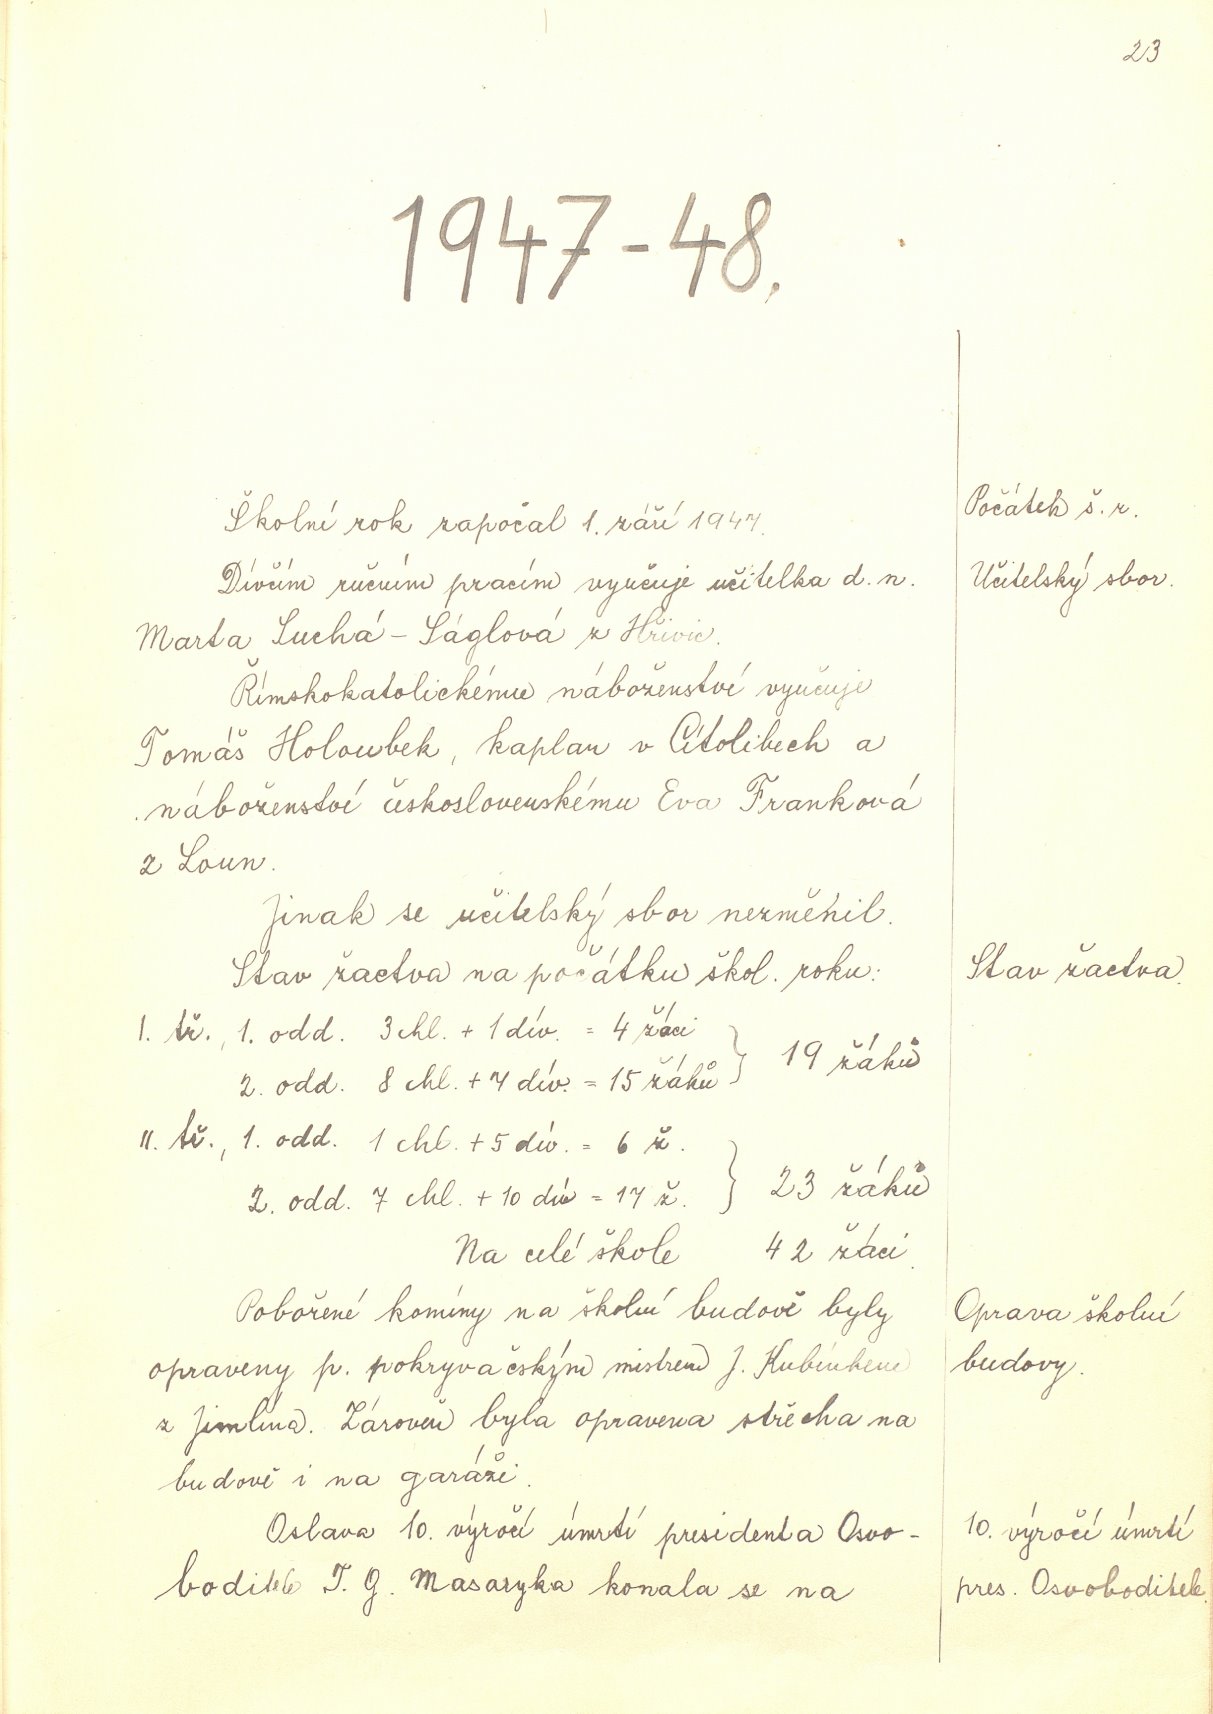 23
1947-48.
Školní rok započal 1. září 1947.
Počátek š. r.
Dívčím ručním pracím vyučuje učitelka d. n.
Učitelský sbor.
Marta Suchá - Ságlová z Hřivic.
Římskokatolickému náboženství vyučuje
Tomáš Holoubek, kaplan v Cítolibech a
náboženství československému Eva Franková
z Loun.
Jinak se učitelský sbor nezměnil.
Stav žactva na počátku škol. roku:
Stav žactva.
I. tř., 1. odd. 3 chl. + 1 dív. = 4 žáci
2. odd. 8 chl. + 7 dív. = 15 žáků } 19 žáků
II. tř., 1. odd. 1 chl. + 5 dív. = 6 ž.
2. odd. 7 chl. + 10 dív = 17 ž. } 23 žáků
Na celé škole 42 žáci.
Pobořené komíny na školní budově byly
Oprava školní
opraveny p. pokryvačským mistrem J. Kubínkem
budovy.
z Jimlína. Zároveň byla opravena střecha na
budově i na garáži.
Oslava 10. výročí úmrtí presidenta Osvo-
10. výročí úmrtí
boditele T. G. Masaryka konala se na
pres. Osvoboditele.